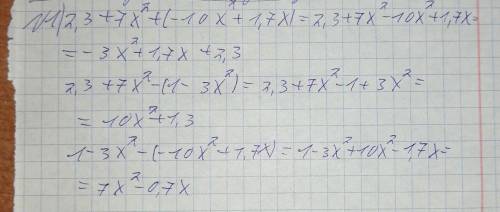 N1) 2,3 + 7x² + (-10x² + 1,7x) = 2,3 + 7x² - 10x² + 1,7x =
= -3x² + 1,7x + 2,3
2,3 + 7x² - (1 - 3x²) = 2,3 + 7x² - 1 + 3x² =
= 10x² + 1,3
1 - 3x² - (-10x² + 1,7x) = 1 - 3x² + 10x² - 1,7x =
= 7x² - 0,7x